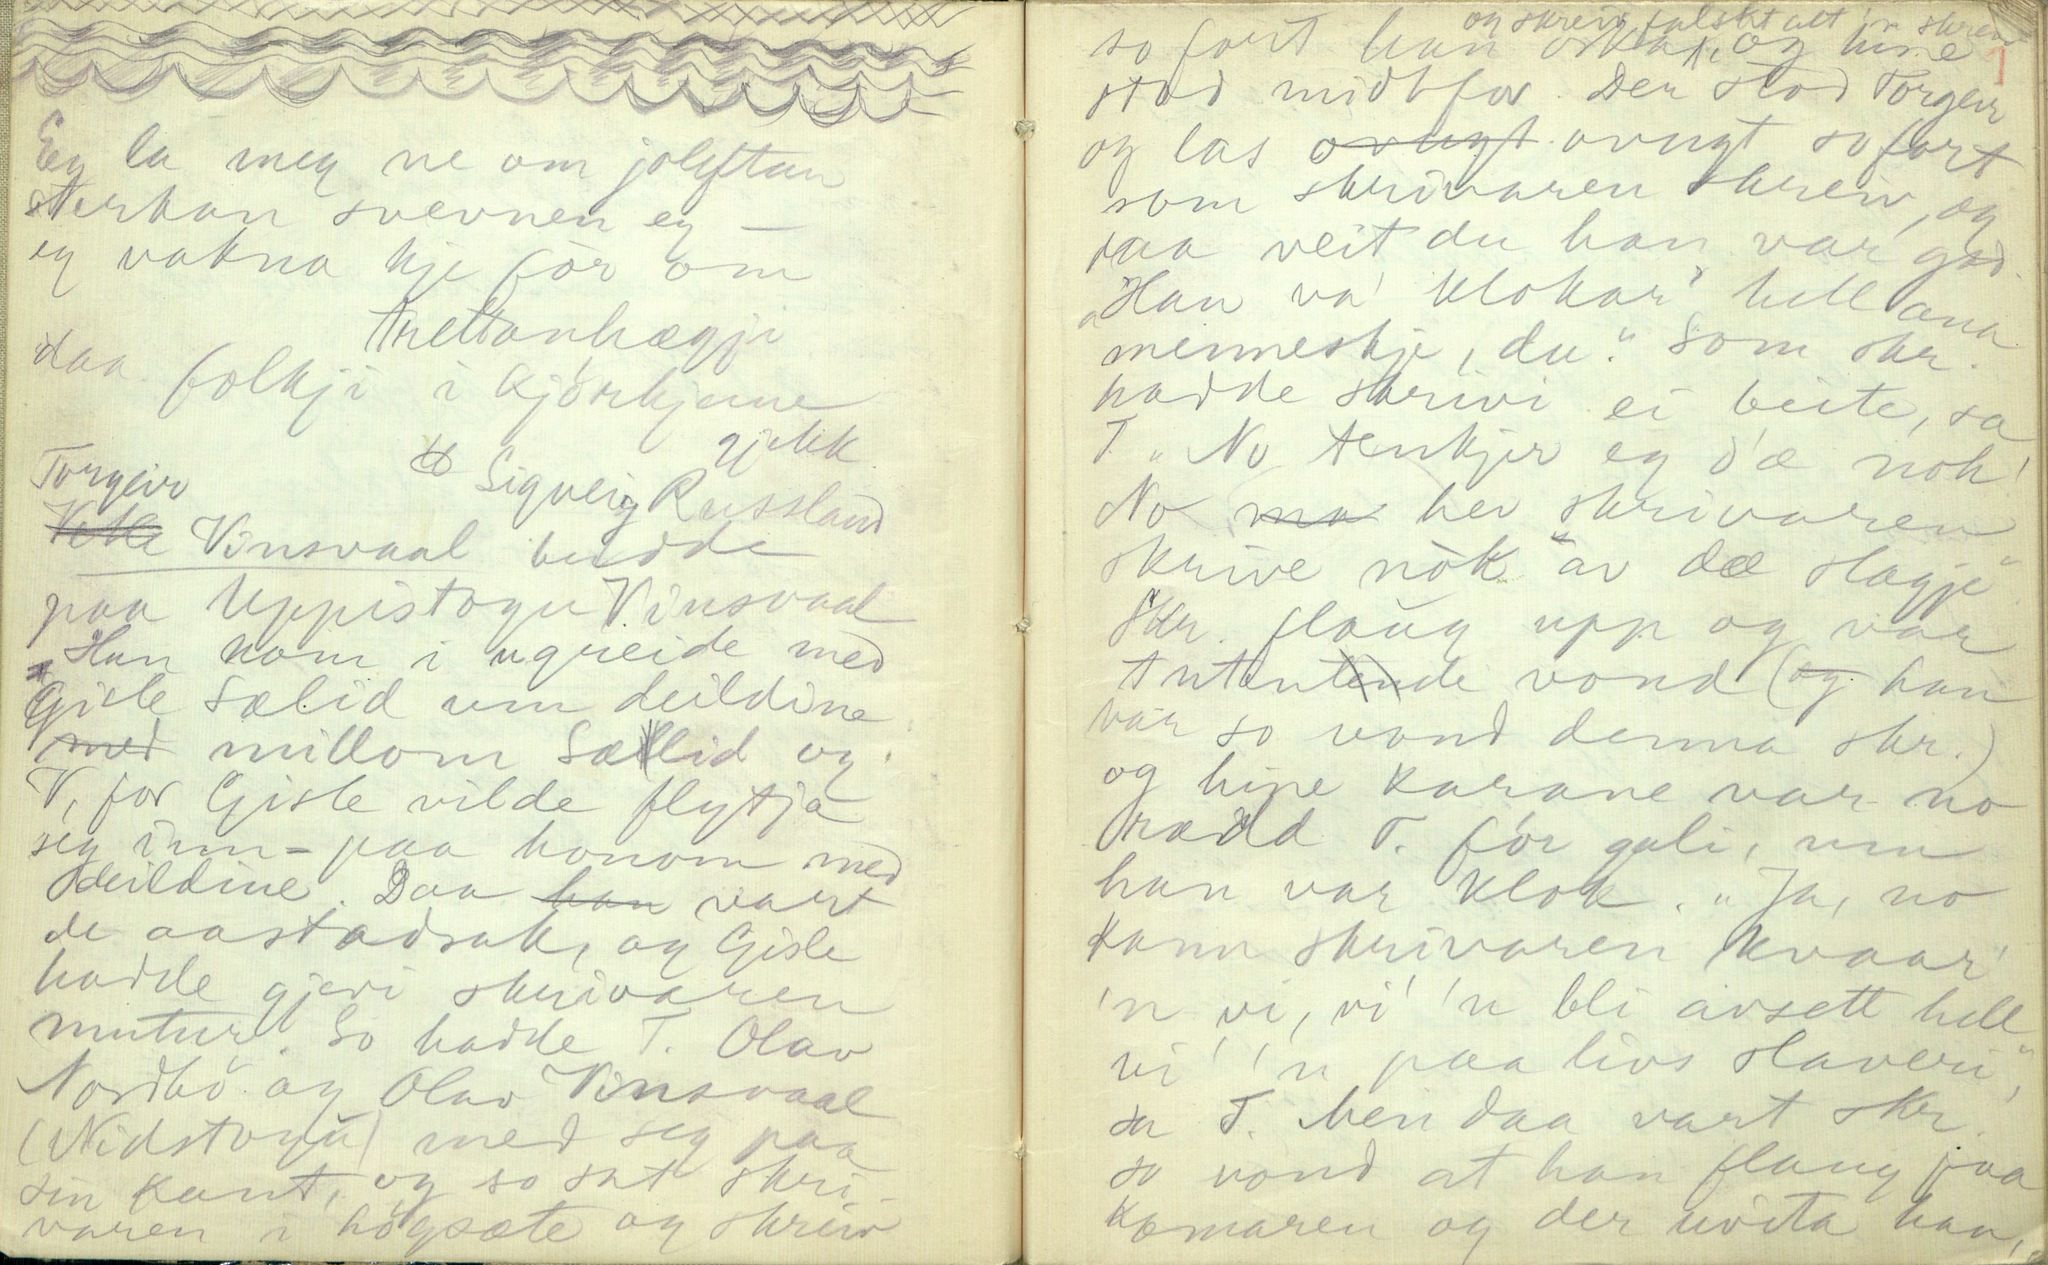 Eg la meg ne om joleftan
sterkan svevnen eg —
eg vakna kje för om
trettanhægji
daa folkji i kjörkjune
gjekk.
Sigveig Russland
Torgeir
Vetle Vinsvaal budde
paa Uppistogu Vinsvaal
Han kom i ugreide med
Gisle Sælid um deildine
med millom Sælid og
V, for Gisle vilde flytja
seg inn-paa honom med
deildine. Daa han vart
de aastadsak, og Gisle
hadde gjevi skrivaren
mutur. So hadde T. Olav
Nordbö og Olav Vinsvaal
(Nidstogu) med seg paa
sin kant, og so sat skri-
varen i högsæte og skreiv
og skreiv falskt alt 'n skreiv
so fort han orka, og hine
stod midtfor. Der stod Torgeir
og las ovugt ovugt so fort
som skrivaren skreiv, og
daa veit du han var god.
"Han va' klokar' hell ana
menneskje, du." Som skr.
hadde skrivi ei beite, sa
T. "No tenkjer eg d'æ nok!
No ma hev skrivaren
skrive nok av dæ slagje"
Skr. flaug upp og var
tutentende vond (og han
var so vond denna skr.)
og hine karane var no
rædd T. for gali, um
han var klok. "Ja, no
kann skrivaren kvaar'
'n vi, vi' 'n bli avsett hell
vi' 'n paa livs slaveri",
sa T. Men daa vart skr.
so vond at han flaug paa
kamaren og der
han,